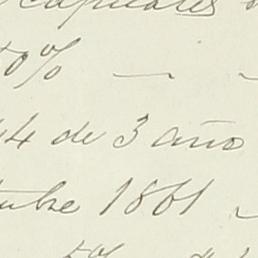 capitales
50% — . —
44 de 3 año
tubre 1861 —
5%